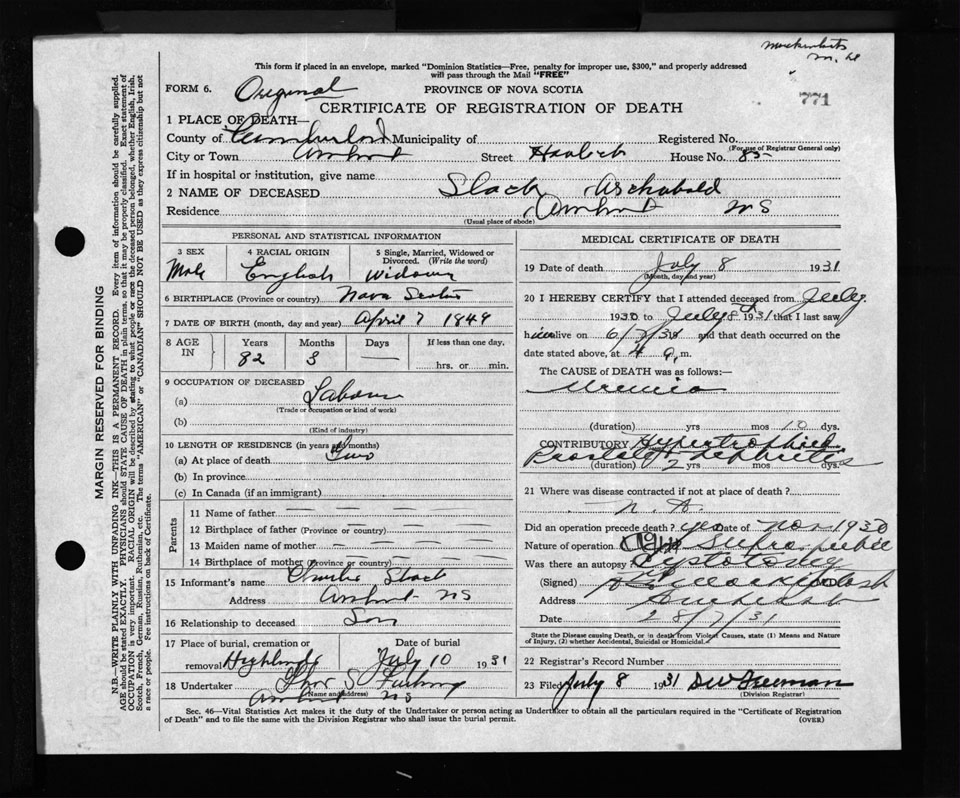 771
This form if placed in an envelope, marked "Dominion Statistics—Free, penalty for improper use, $300," and properly addressed
will pass through the Mail "FREE"
FORM 6. Original PROVINCE OF NOVA SCOTIA
CERTIFICATE OF REGISTRATION OF DEATH
1 PLACE OF DEATH—
County of Cumberland Municipality of Registered No.
(For use of Registrar General only)
City or Town Amherst Street House No. 85
If in hospital or institution, give name
2 NAME OF DECEASED Slack Archabald
Residence Amherst NS
(Usual place of abode)
PERSONAL AND STATISTICAL INFORMATION
3 SEX 4 RACIAL ORIGIN 5 Single, Married, Widowed or
Divorced. (Write the word)
Male English Widower
6 BIRTHPLACE (Province or country) Nova Scotia
7 DATE OF BIRTH (month, day and year) April 7 1849
8 AGE IN Years Months Days If less than one day,
82 3 — hrs. or min.
9 OCCUPATION OF DECEASED
(a) Labourer
(Trade or occupation or kind of work)
(b)
(Kind of industry)
10 LENGTH OF RESIDENCE (in years and months)
(a) At place of death Two
(b) In province
(c) In Canada (if an immigrant)
Parents
11 Name of father — — — —
12 Birthplace of father (Province or country) — — —
13 Maiden name of mother — — — —
14 Birthplace of mother (Province or country) — — —
15 Informant's name Charlie Slack
Address Amherst NS
16 Relationship to deceased Son
17 Place of burial, cremation or Date of burial
removal Highlands July 10 1931
18 Undertaker Furlong
(Name and address)
Amherst NS
MEDICAL CERTIFICATE OF DEATH
19 Date of death July 8 1931
(Month, day and year)
20 I HEREBY CERTIFY that I attended deceased from July
1930 to July 8 1931 that I last saw
him alive on 6/7/31 and that death occurred on the
date stated above, at 4 a. m.
The CAUSE of DEATH was as follows:—
Uremia
(duration) yrs mos 10 dys.
CONTRIBUTORY Hypertrophied
Prostate & Nephritis
(duration) 2 yrs mos dys.
21 Where was disease contracted if not at place of death ?
N. A.
Did an operation precede death ? yes Date of Nov 1930
Nature of operation Supra pubic
Was there an autopsy Cystotomy
(Signed)
Address Amherst
Date 8/7/31
State the Disease causing Death, or in death from Violent Causes, state (1) Means and Nature
of Injury, (2) whether Accidental, Suicidal or Homicidal.
22 Registrar's Record Number
23 Filed July 8 1931 DW Freeman
(Division Registrar)
Sec. 46—Vital Statistics Act makes it the duty of the Undertaker or person acting as Undertaker to obtain all the particulars required in the "Certificate of Registration
of Death" and to file the same with the Division Registrar who shall issue the burial permit. (OVER)
MARGIN RESERVED FOR BINDING
N.B.—WRITE PLAINLY WITH UNFADING INK—THIS IS A PERMANENT RECORD. Every item of information should be carefully supplied.
AGE should be stated EXACTLY. PHYSICIANS should STATE CAUSE OF DEATH in plain terms, so that it may be properly classified. Exact statement of
OCCUPATION is very important. RACIAL ORIGIN will be described by stating to what people or race the deceased person belonged, whether English, Irish,
Scotch, French, German, Russian, Ruthenian, etc. The terms "AMERICAN" or "CANADIAN" SHOULD NOT BE USED as they express citizenship but not
a race or people. See instructions on back of Certificate.